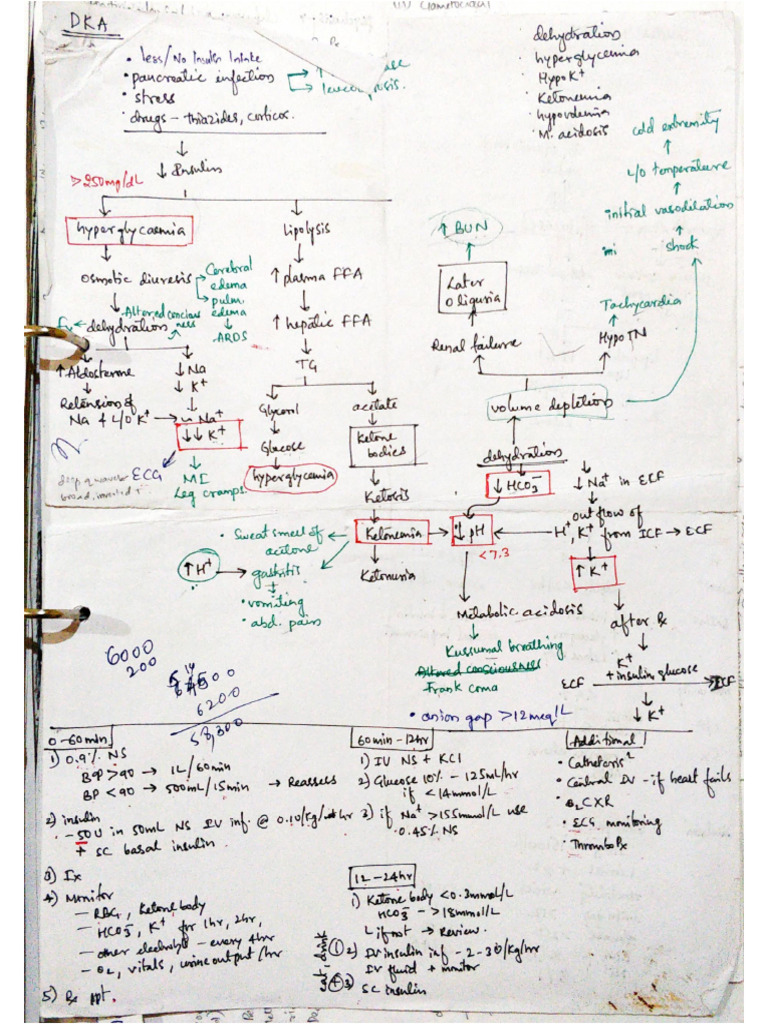 DKA
• less/No Insulin Intake
• pancreatic infection
• stress
• drugs – thiazides, corticos.
dehydration
• hyperglycemia
• Hypo K+
• Ketonemia
• hypovolemia
• M. acidosis
cold extremity
↑
L/O temperature
↑
initial vasodilation
↑
shock
↓ Insulin
>250mg/dL
hyperglycaemia
Lipolysis
↑ BUN
Osmotic diuresis
Cerebral
edema
pulm.
edema
↓
ARDS
↑ plasma FFA
Later
Oliguria
Tachycardia
Altered conciousness
dehydration
↑ hepatic FFA
Renal failure
HypoTN
↑ Aldosterone
↓ Na
↓ K+
TG
Retension of
Na & L/O K+
Na+
↓↓ K+
Glycerol
acetate
volume depletion
Glucose
Ketone
bodies
dehydration
ECG
MI
Leg cramps
hyperglycemia
Ketosis
↓ HCO3-
↓ Na+ in ECF
outflow of
• Sweat smell of
acetone
Ketonemia
↓ pH
<7.3
H+, K+ from ICF → ECF
↑ H+
gastritis
+
• vomiting
• abd. pain
Ketonuria
↑ K+
Metabolic acidosis
after Rx
Kussumal breathing
Altered consciousness
Frank coma
K+
+ insulin, glucose
ECF
ICF
↓ K+
• anion gap >12meq/L
6000
200
6200
58,300
0-60min
1) 0.9% NS
BP >90 → 1L/60min
BP <90 → 500mL/15min → Reassess
2) insulin
– 50U in 50mL NS IV inf. @ 0.1U/kg/hr
+ SC basal insulin
3) Ix
4) Monitor
– RBG, Ketone body
– HCO3-, K+ for 1hr, 2hr,
– other electrolyt – every 4hr
– O2, vitals, urine output /hr
5) Rx ppt.
60min – 12hr
1) IV NS + KCl
2) Glucose 10% – 125mL/hr
if <14mmol/L
3) if Na+ >155mmol/L use
0.45% NS
12-24hr
1) Ketone body <0.3mmol/L
HCO3- → >18mmol/L
if not → Review.
2) IV insulin inf – 2-3U/kg/hr
IV fluid + monitor
3) SC insulin
Additional
• Catheteris
• Central IV – if heart fails
• O2 CXR
• ECG monitoring
• Thrombo Px